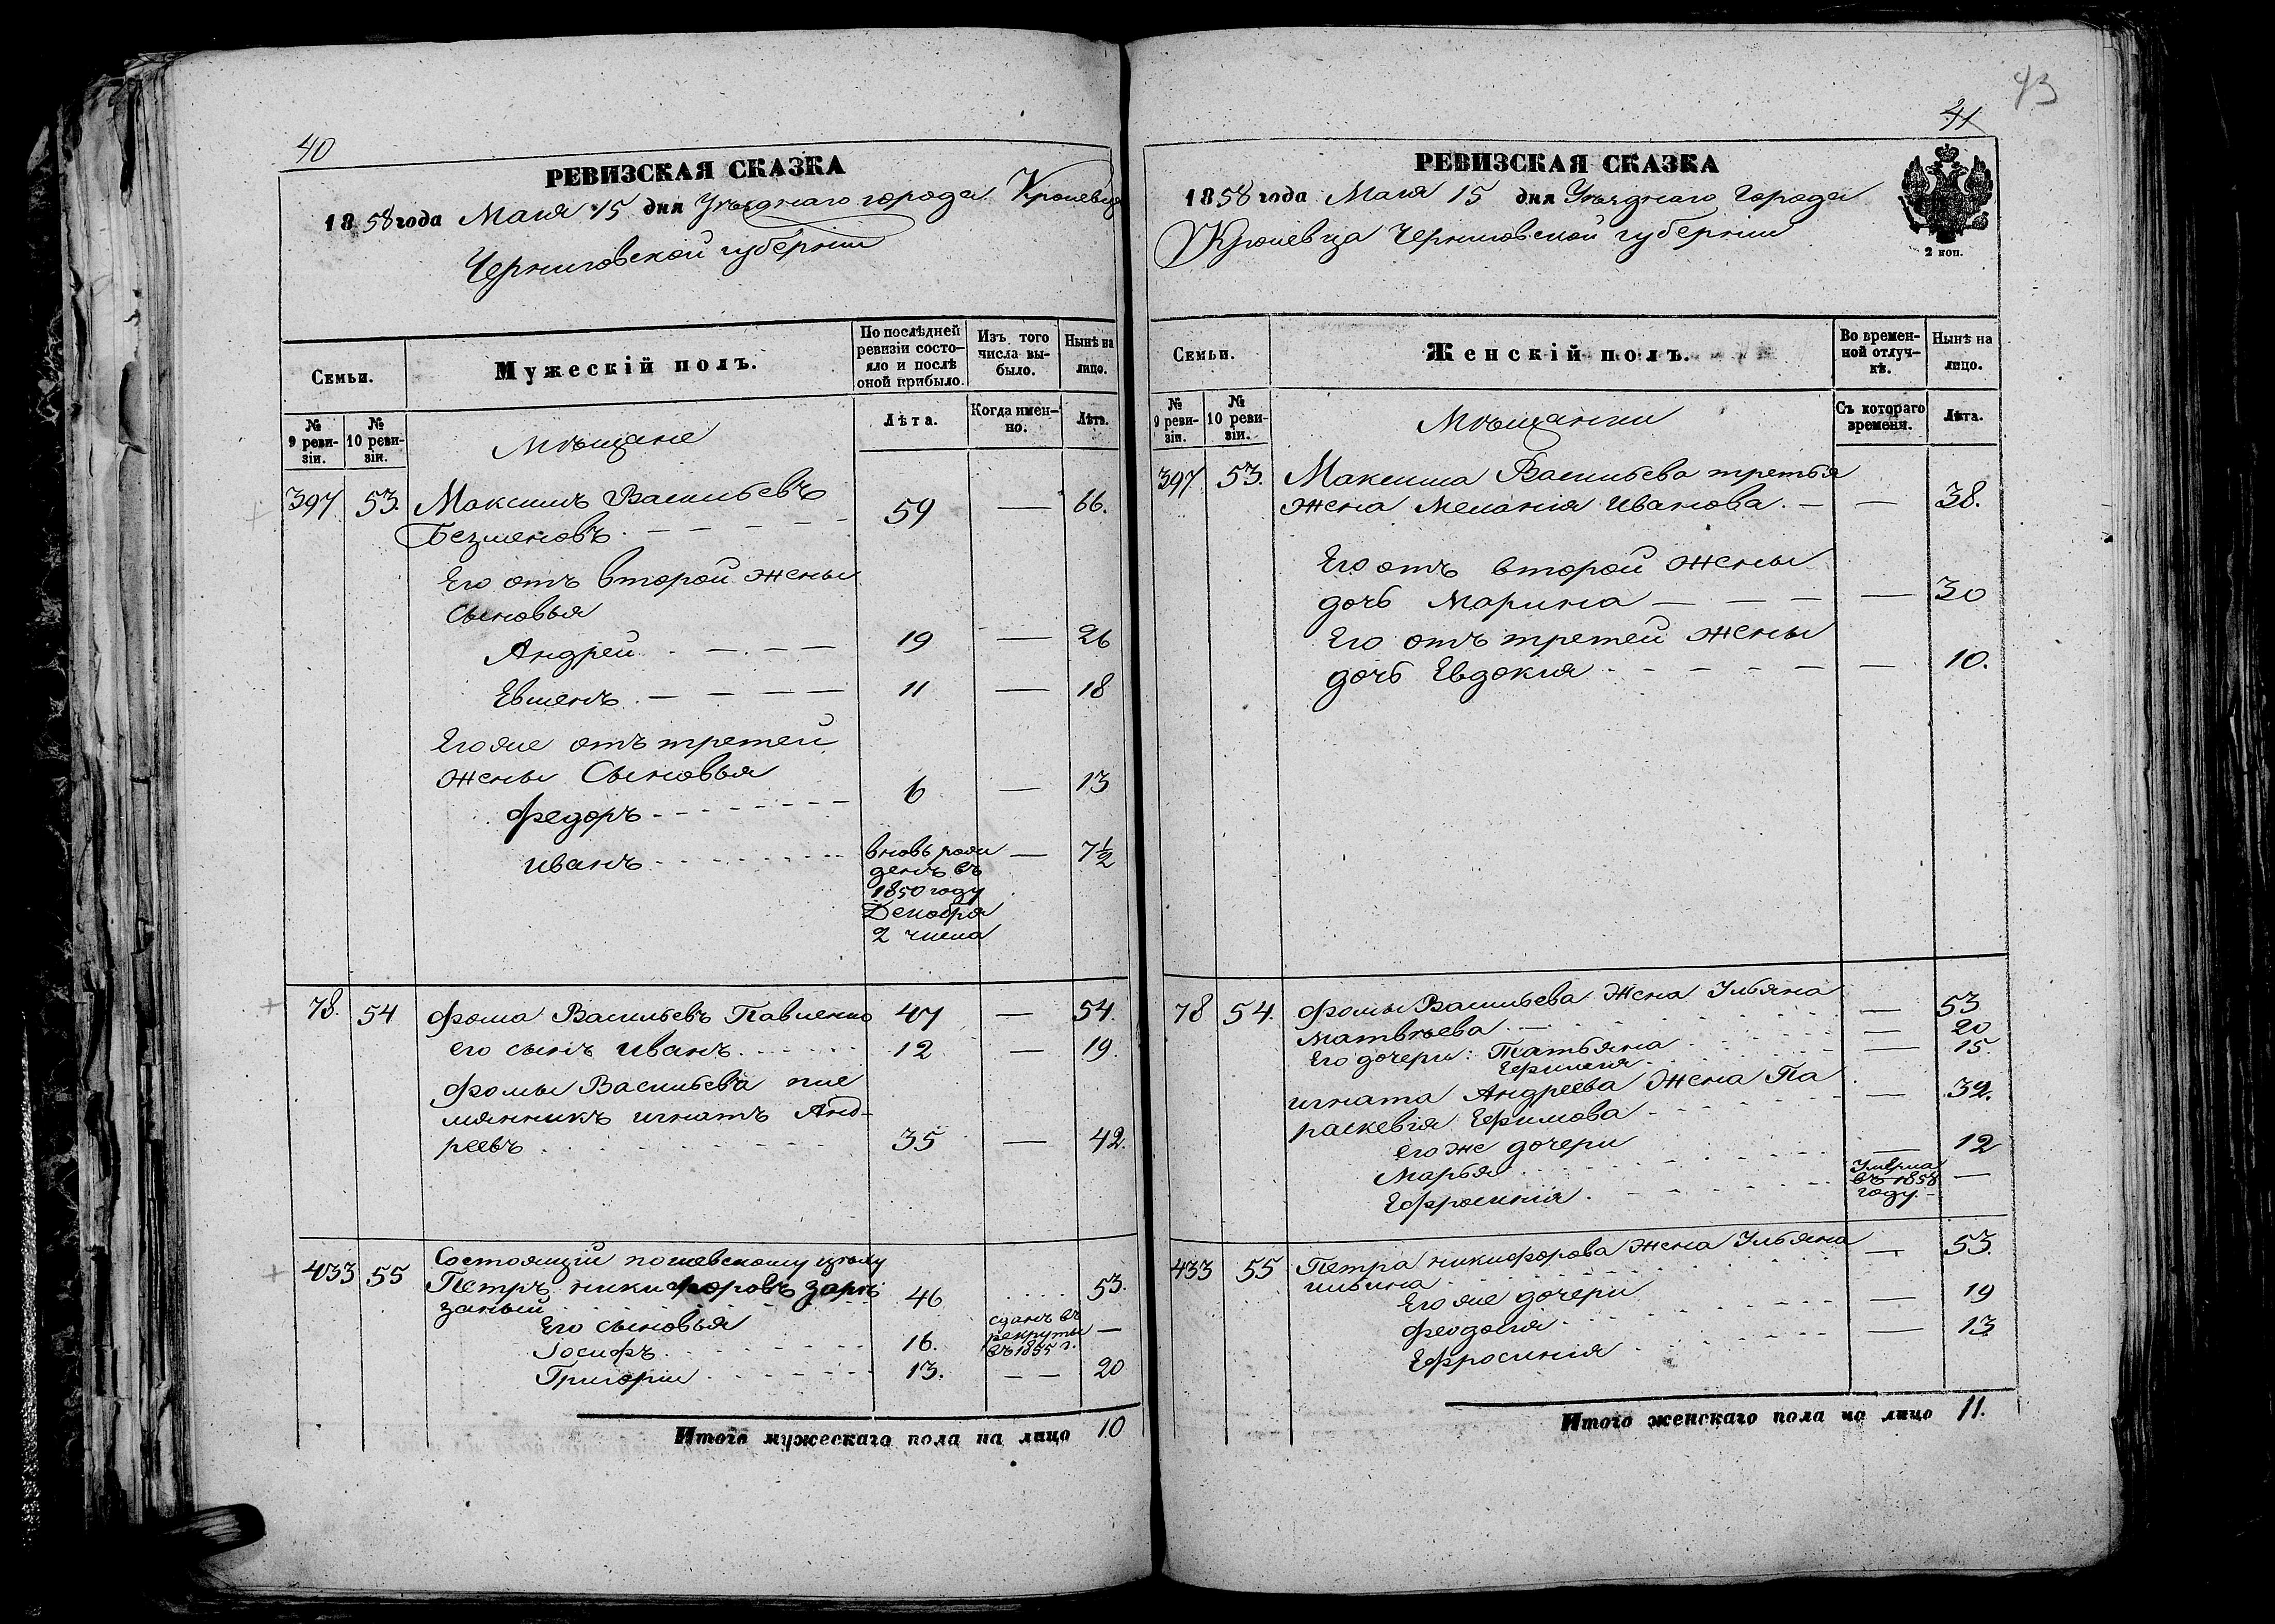 40
РЕВИЗСКАЯ СКАЗКА
1858 года Маія 15 дня Уѣзднаго города Кролевца
Черниговской губерніи
Семьи.
Мужескій полъ.
По послѣдней ревизіи состояло и послѣ оной прибыло.
Изъ того числа выбыло.
Нынѣ на лицо.
№ 9 ревизіи.
№ 10 ревизіи.
Лѣта.
Когда именно.
Лѣта.
Мѣщане
397 53. Максимъ Васильевъ
Безменовъ. 59 — 66.
Его отъ второй жены
Сыновья
Андрей 19 — 26
Евменъ 11 — 18
Его же отъ третей
жены Сыновья
Федоръ 6 — 13
Иванъ вновь рож — 7½
денъ въ
1850 году
Декабря
2 числа
78. 54 Фома Васильевъ Павленко 47 — 54.
его сынъ Иванъ 12 — 19.
Фомы Васильева пле
мянникъ Игнатъ Анд-
реевъ 35 — 42.
433 55 Состоящій по
Петръ Никифоровъ Зарѣ
заный 46 53.
Его сыновья
Іосифъ 16. сданъ въ рекруты въ 1855 г. —
Григорій 13. — — 20
Итого мужескаго пола на лицо 10
43
41
РЕВИЗСКАЯ СКАЗКА
1858 года Маія 15 дня Уѣзднаго Города
Кролевца Черниговской губерніи
2 коп.
Семьи.
Женскій полъ.
Во временной отлучкѣ.
Нынѣ на лицо.
№ 9 ревизіи.
№ 10 ревизіи.
Съ котораго времени.
Лѣта.
Мѣщанки
397 53. Максима Васильева третья
жена Меланія Иванова. — — 38.
Его отъ второй жены
дочь Марина — 30
Его отъ третей жены
дочь Евдокия — 10.
78 54. Фомы Васильева Жена Ульяна
Матвѣева — 53
Его дочери: Татьяна — 20
— 15.
Игната Андреева Жена Па
раскевія Ефимова — 32.
его же дочери
Марья — 12
Ефросинія Умерла въ 1858 году. —
433 55 Петра Никифорова жена Ульяна
Ильина — 53.
Его же дочери
Феодосія — 19
Ефросинія — 13
Итого женскаго пола на лицо 11.